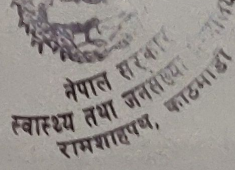 नेपाल सरकार
स्वास्थ्य तथा जनसंख्या
रामशाहपथ, काठमाडौं